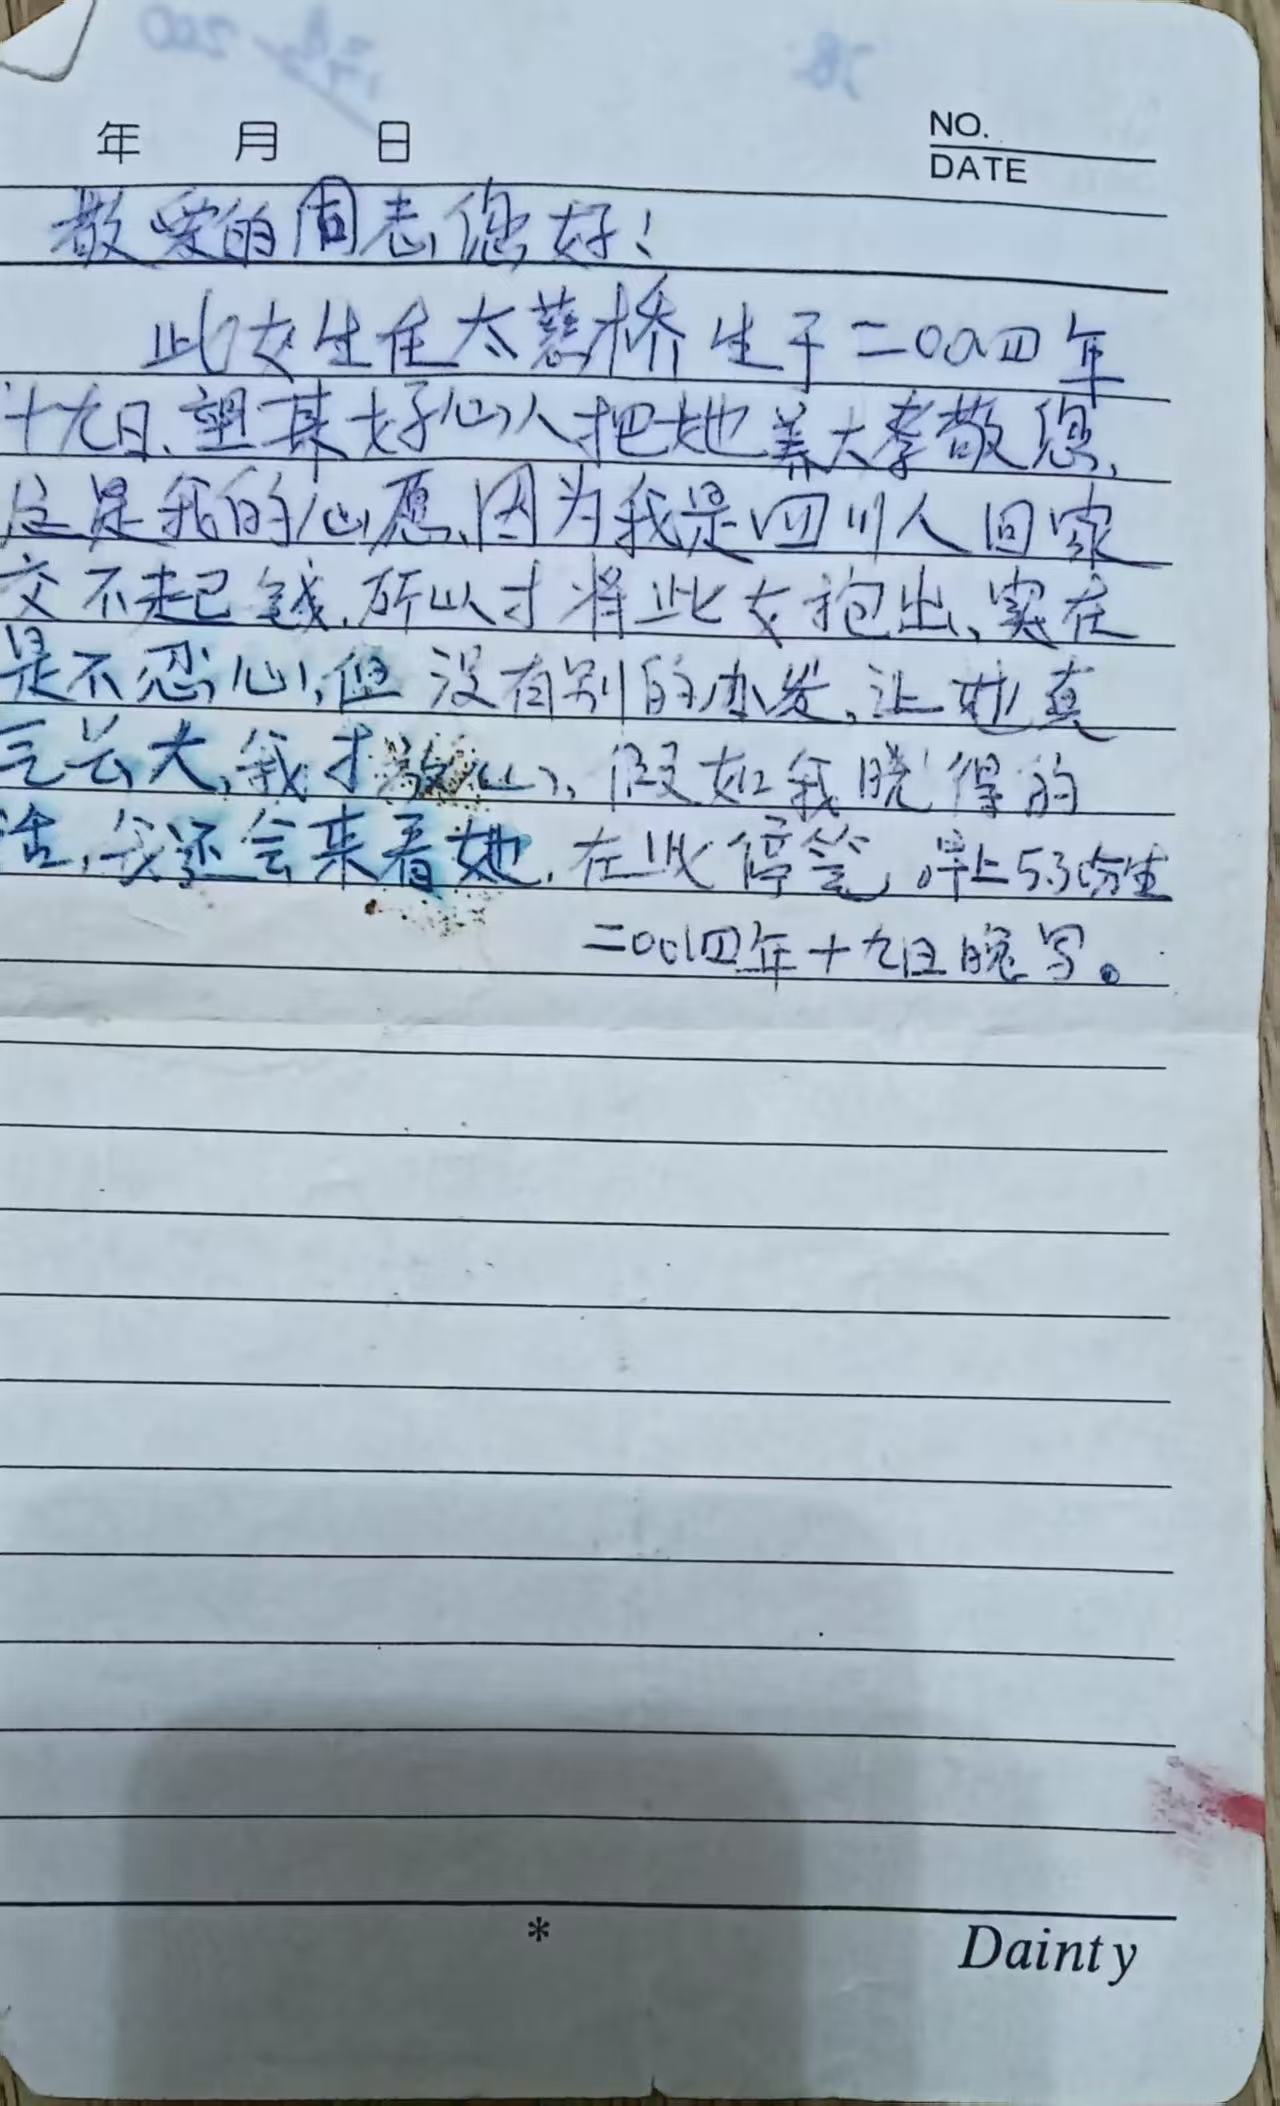 年 月 日
NO.
DATE
敬爱的同志您好！
此女生在太慈桥生于二00四年
十九日、望某好心人把她养大孝敬您、
这是我的心愿、因为我是四川人回家
交不起钱、所以才将此女抱出、实在
是不忍心、但没有别的办发、让她真
长大、我才放心、假如我晓得的
话、我还会来看她、在此停笔、早上5.30分生
二00四年十九日晚写。
*
Dainty